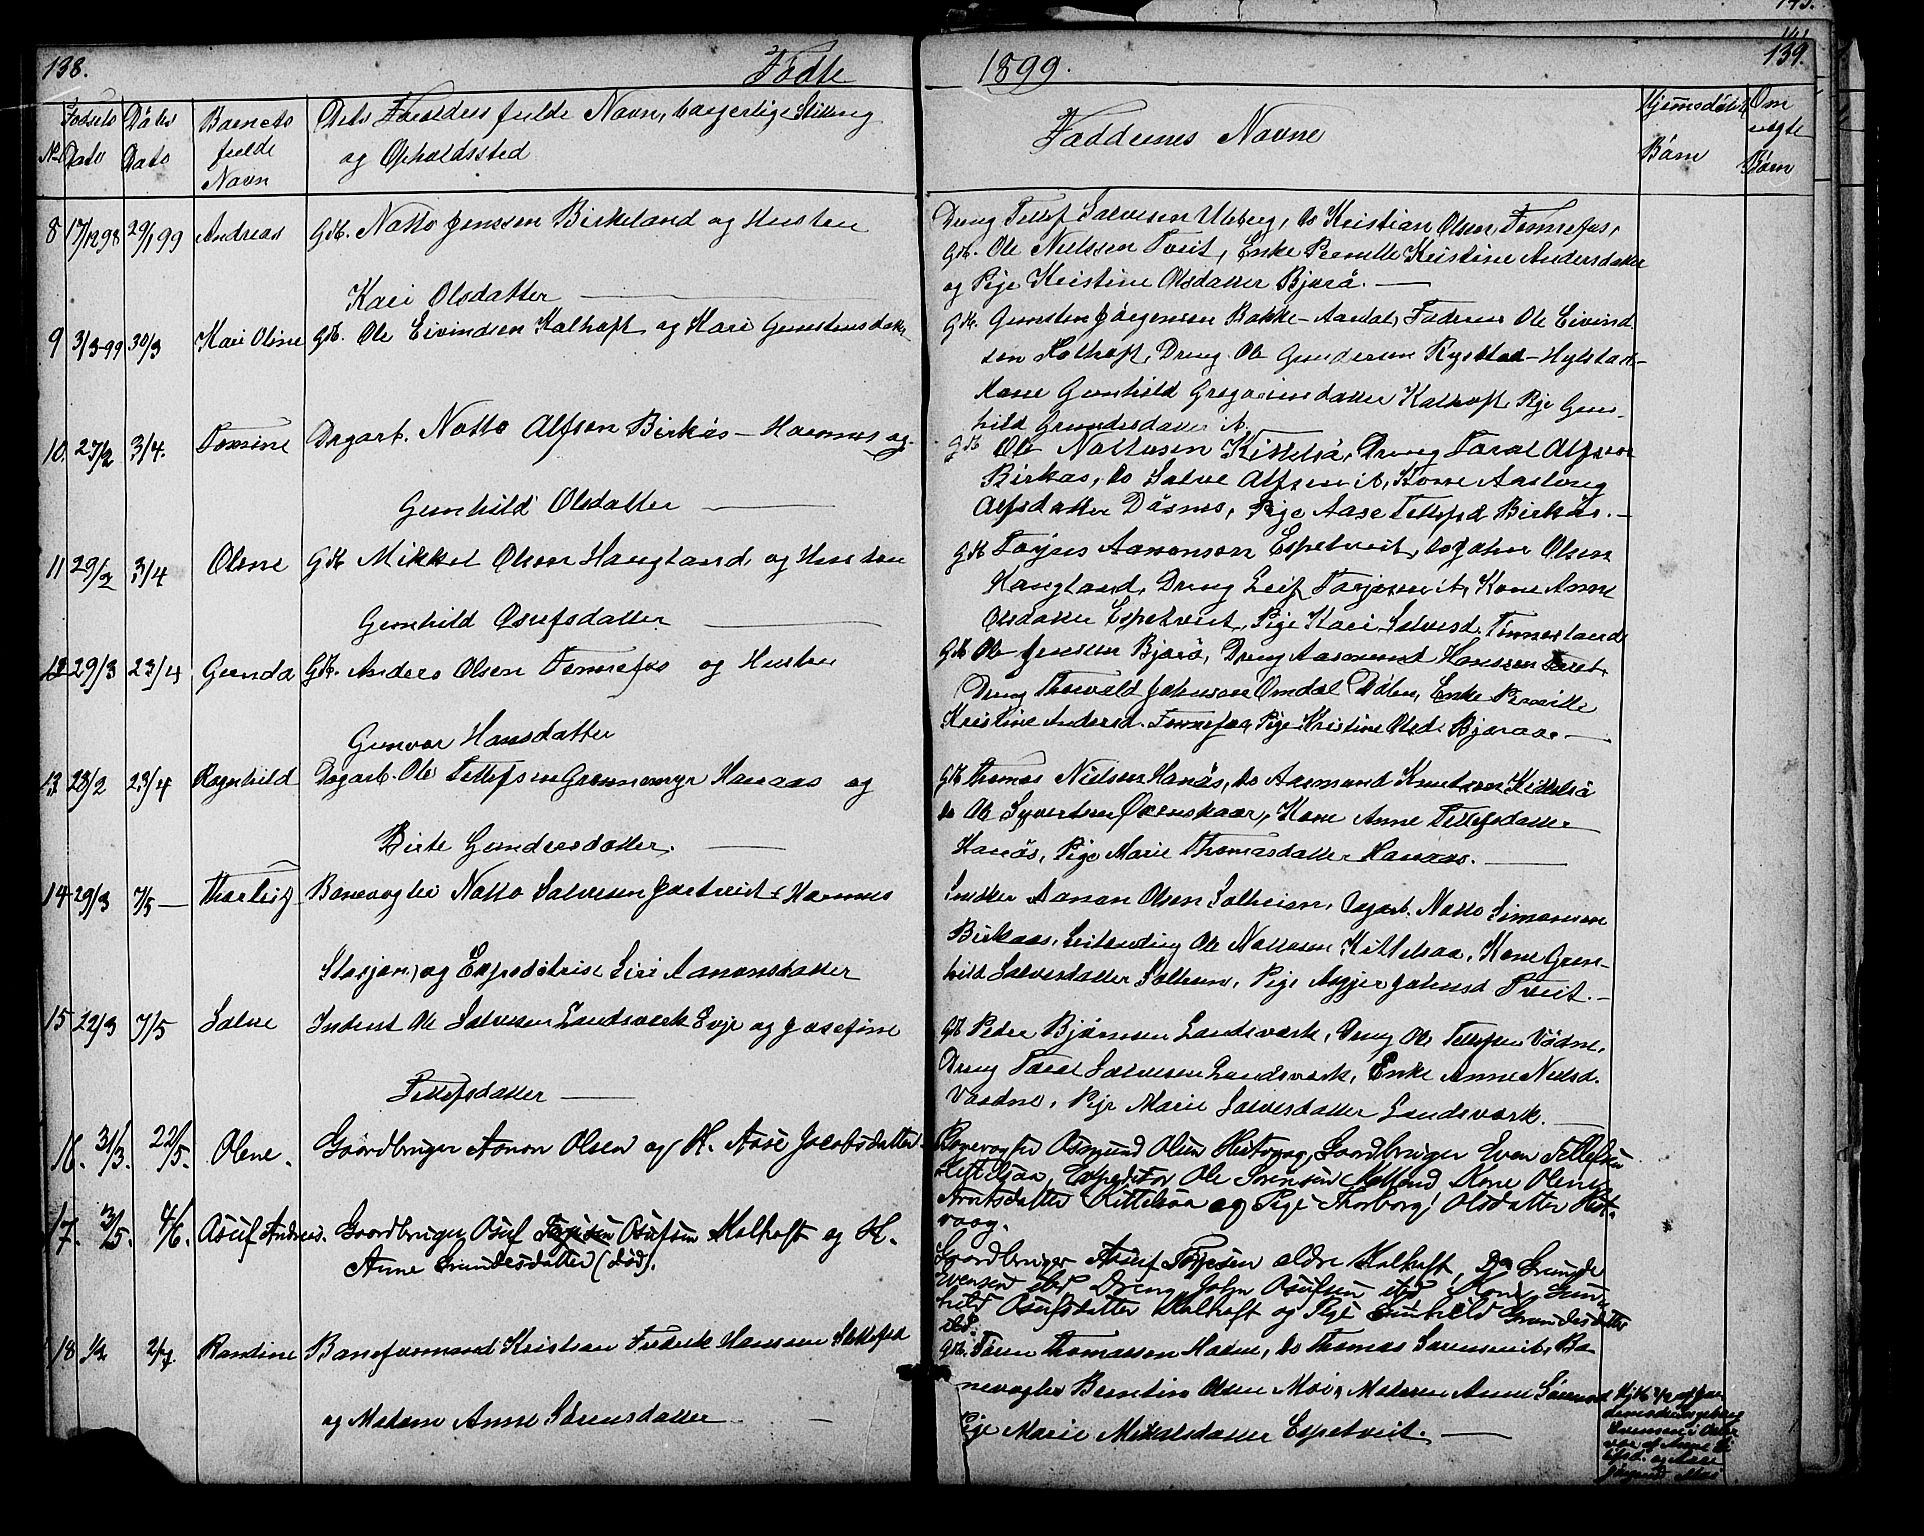 138.
Fødte
1899.
139.
No
Fødsels Dato
Døbes Dato
Barnets fulde Navn
Dets Forældres fulde Navn, borgerlige Stilling
og Opholdssted
Faddernes Navne
Hjemmedøbte
Børn
Om
Børn
8 17/12 98 29/1 99 Andreas Gbr. Natto Jenssen Birkeland og Hustru
Kari Olsdatter
Dreng Tellef Salvesen Uleberg, do Kristian Olsen Fennefos,
Gbr. Ole Nielssen Tveit, Enke Pernille Kristine Andersdatter
og Pige Kristine Olsdatter Bjorå.
9 3/3-99 30/3 Kari Oline Gbr. Ole Eivindsen Kalhoft og Kari Gunstensdatter
Gbr. Gunsten Jørgensen Bakke-Aardal, Faderen Ole Eivind
sen Kalhoft, Dreng Ole Gundersen Rystad-Hylstad
Kone Gunhild Gregoriusdatter Kalhoft, Pige Gun-
hild Grundesdatter
10. 27/2 3/4. Tomine Dagarb. Natto Alfsen Birkås-Hornnes og
Gunhild Olsdatter
Gbr. Ole Nattosen Kittelså, Dreng Taral Alfsen
Birkås, do Salve Alfsen, Kone Aaslaug
Alfsdatter Dåsnes, Pige Aase Tellefsd Birkås.
11 29/2 3/4 Olene Gbr. Mikkel Olsen Haugland og Hustru
Gunhild Osufsdatter
Gbr. Torjus Aanonsen Espetveit, do Johan Olsen
Haugland, Dreng Leif Torjussen, Kone Anne
Olsdatter Espetveit, Pige Kari Salvesd.
12 29/3 23/4 Gunda Gbr. Anders Olsen Fennefos og Hustru
Gunvor Hansdatter
Gbr. Ole Jenssen Bjorå, Dreng Aasmund Hanssen
Dreng Thorvald Johnsen Omdal, Enke Pernille
Kristine Andersd. Fennefos, Pige Kristine Olsd Bjoraa.
13 23/2 23/4 Ragnhild Dagarb. Ole Tellefsen Grønnemyr Hanaas og
Birte Gundersdatter.
Gbr. Thomas Nielsen Hanås, do Aasmund Knutsen Kittelså
do Ole Syvertsen Øvenskaar, Kone Anne Tellefsdatter
Hanås, Pige Marie Thomasdatter Hanaas.
14 29/3 7/5 Thorleif Banevogter Natto Salvesen Hornnes
Stasjon, og Expeditrise Siri Aanonsdatter
Snekker Aanon Olsen Solheim, Dagarb. Natto Simonsen
Birkaas, Ole Nattosen Kittelsaa, Kone Gun-
hild Salvesdatter Solheim, Pige Johnsd Tveit.
15 22/3 7/5 Salve Inderst Ole Salvesen Landsværk Evje og Josefine
Tellefsdatter
Gbr. Peder Bjørnsen Landsværk, Dreng Ole Tellefsen Vådne,
Dreng Taral Salvesen Landsværk, Enke Anne Nielsd.
Vaadne, Pige Marie Salvesdatter Landsværk.
16. 31/3. 22/5. Olene. Gaardbruger Aanon Olsen og H. Aase Jacobsdatter
Banevogter Osmund Olsen Hestvaag, Gaardbruger Even Tellefsen
Kittelsaa, Expeditør Ole Sørensen Kone Oleng
Arntsdatter Kittelsaa og Pige Thorborg Olsdatter Hest-
vaag.
17. 3/5. 4/6. Osuf Andreas. Gaardbruger Osuf Osufsen Kalhoft og H.
Anne Grundesdatter (død).
Gaardbruger Osuf Torjusen ældre Kalhoft, Do Grunde
Evensen ibd, Dreng John Osufsen ibd Kone Gun-
hild Osufsdatter Kalhoft og Pige Gunhild Grundesdatter
ibd.
18 2/7. Randine Baneformand Kristian Fredrik Hanssen
og Madam Anne Sørensdatter
Gbr. Søren Thomassen do Thomas Sørensen, Ba-
nevogter Berntin Olsen Moi, Madam Anne
Pige Marie Mikkelsdatter Espetveit.